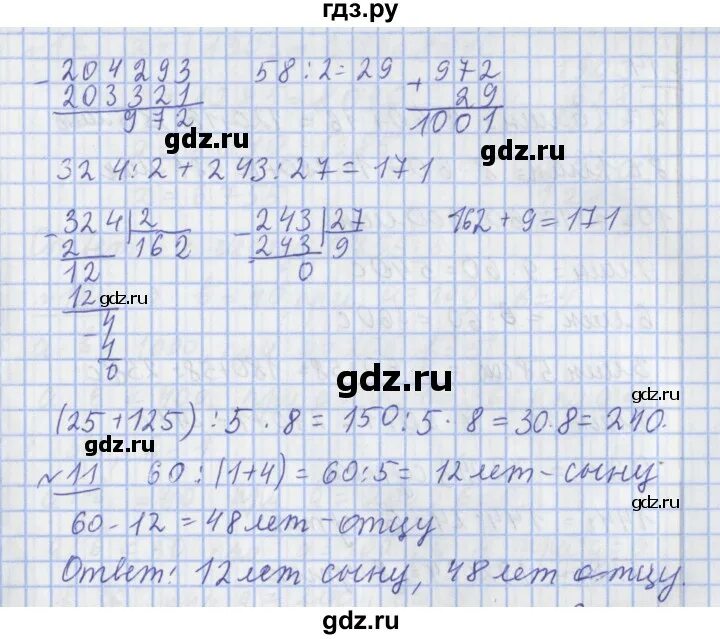 гдз.ру
204293
203321
972
58 : 2 = 29
+ 972
29
1001
gdz.ru
gdz.ru
324 : 2 + 243 : 27 = 171
324 | 2
2 162
12
12
4
4
0
gdz.ru
243 | 27
243 9
0
162 + 9 = 171
gdz.ru
(25 + 125) : 5 · 8 = 150 : 5 · 8 = 30 · 8 = 240.
gdz.ru
gdz.ru
№11 60 : (1+4) = 60 : 5 = 12 лет - сыну
60 - 12 = 48 лет - отцу
Ответ: 12 лет сыну, 48 лет отцу.
gdz.ru
gdz.ru